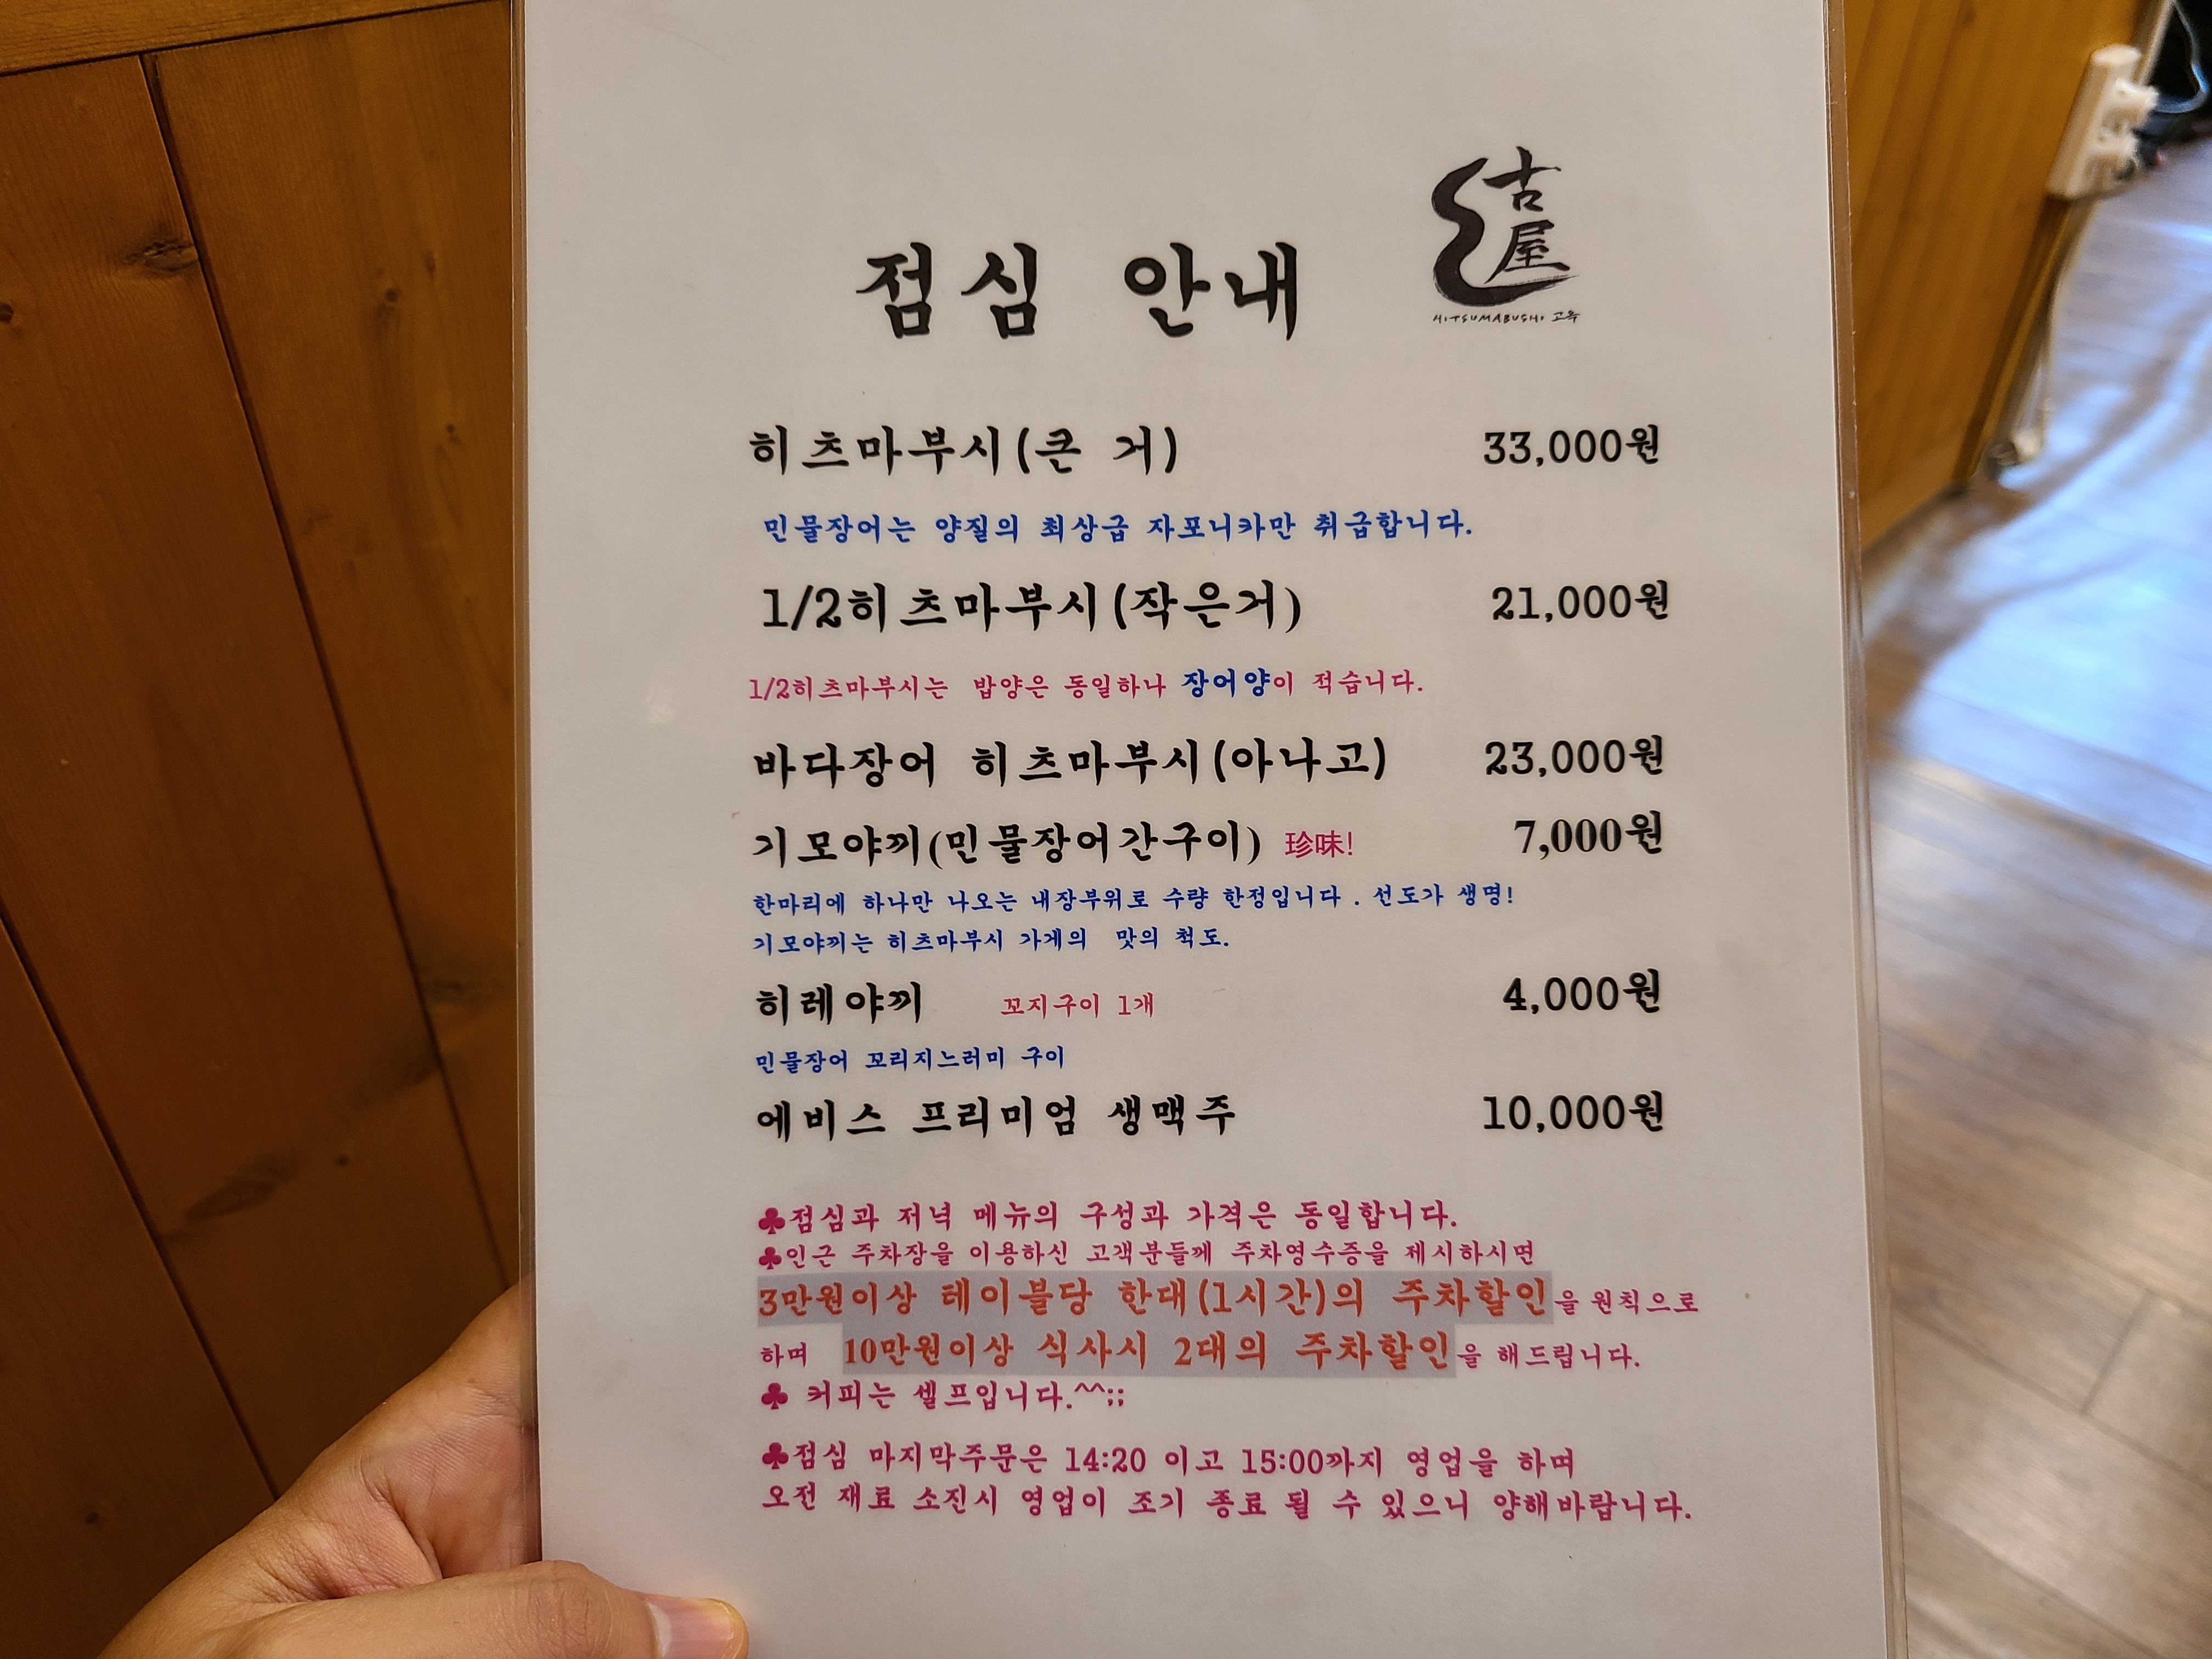 古屋
HITSUMABUSHI 고옥
점심 안내
히츠마부시(큰 거) 33,000원
민물장어는 양질의 최상급 자포니카만 취급합니다.
1/2히츠마부시(작은거) 21,000원
1/2히츠마부시는 밥양은 동일하나 장어양이 적습니다.
바다장어 히츠마부시(아나고) 23,000원
기모야끼(민물장어간구이) 珍味! 7,000원
한마리에 하나만 나오는 내장부위로 수량 한정입니다 . 선도가 생명!
기모야끼는 히츠마부시 가게의 맛의 척도.
히레야끼 꼬지구이 1개 4,000원
민물장어 꼬리지느러미 구이
에비스 프리미엄 생맥주 10,000원
♣점심과 저녁 메뉴의 구성과 가격은 동일합니다.
♣인근 주차장을 이용하신 고객분들께 주차영수증을 제시하시면
3만원이상 테이블당 한대(1시간)의 주차할인을 원칙으로
하며 10만원이상 식사시 2대의 주차할인을 해드립니다.
♣ 커피는 셀프입니다.^^;;
♣점심 마지막주문은 14:20 이고 15:00까지 영업을 하며
오전 재료 소진시 영업이 조기 종료 될 수 있으니 양해바랍니다.